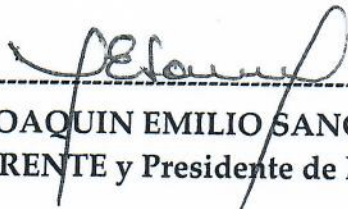 OAQUIN EMILIO SANC
RENTE y Presidente de